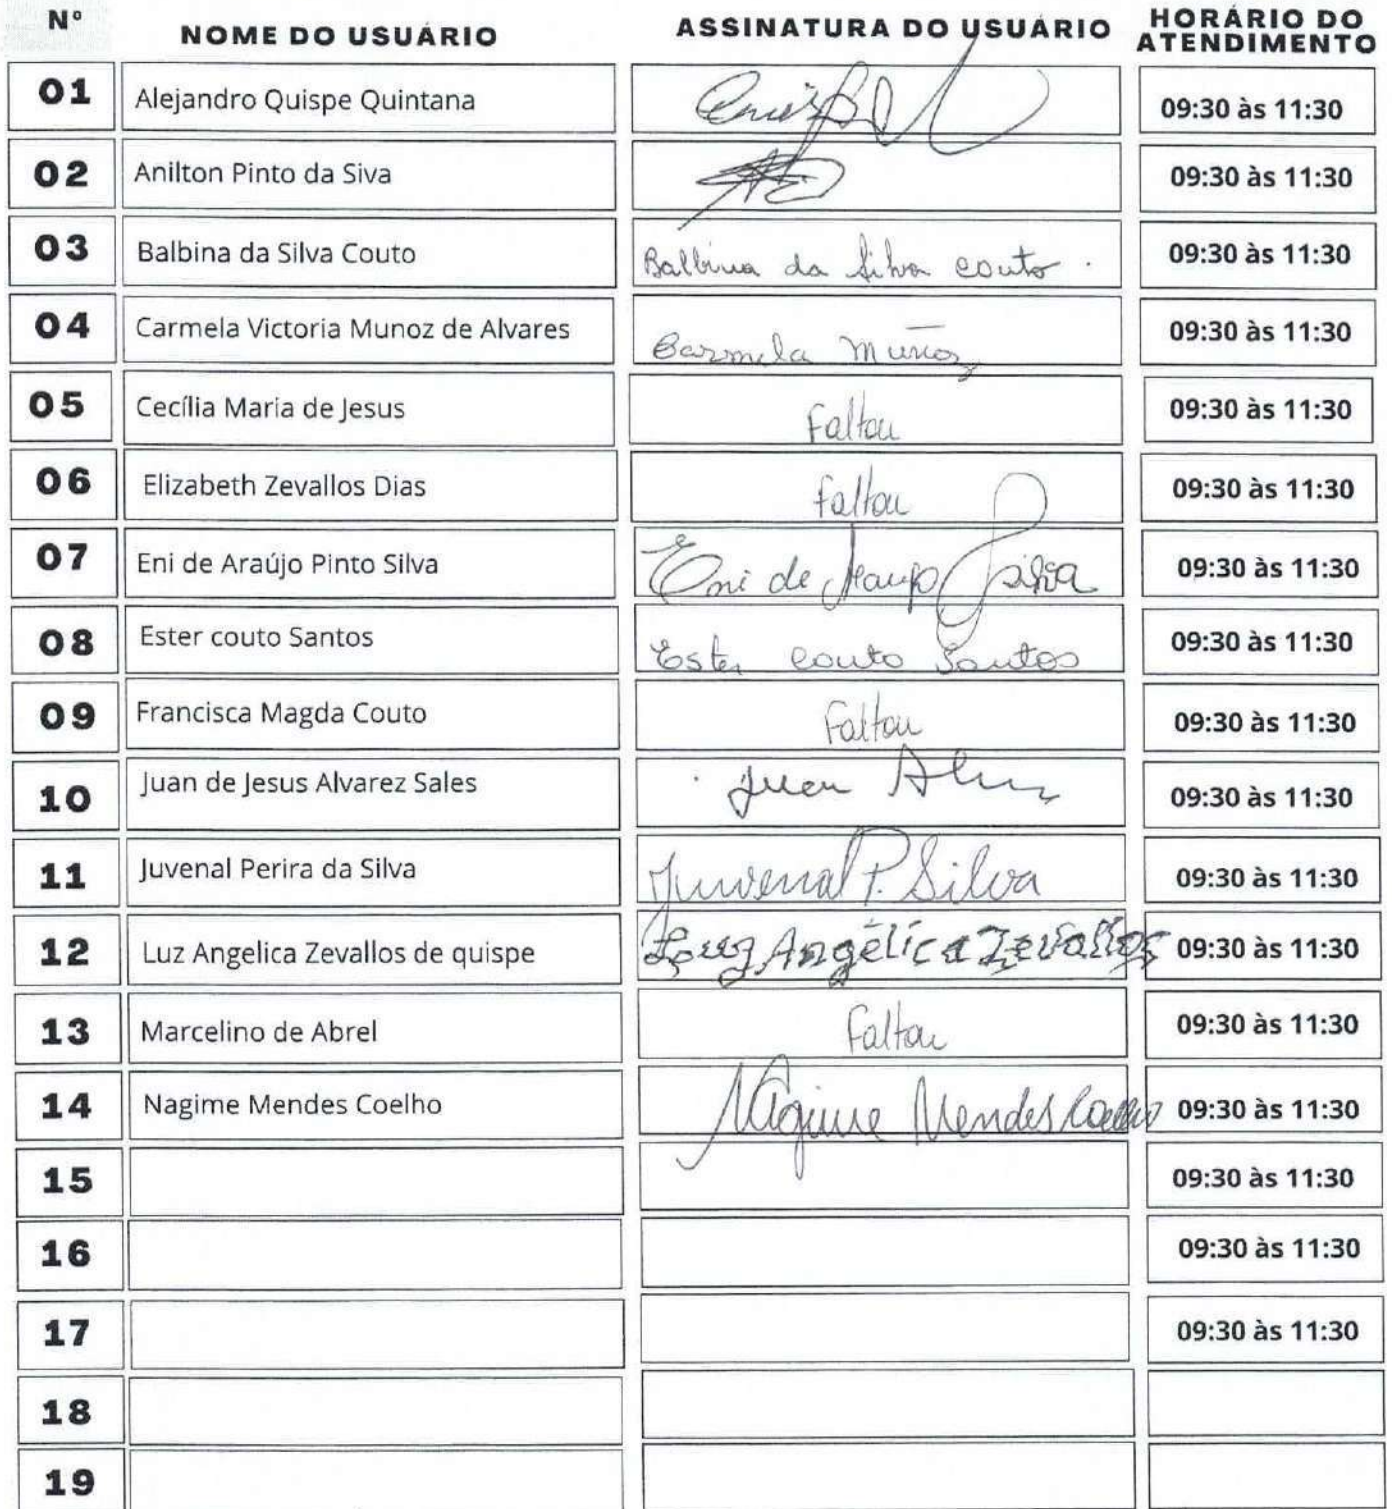 Nº NOME DO USUÁRIO ASSINATURA DO USUÁRIO HORÁRIO DO ATENDIMENTO
01 Alejandro Quispe Quintana 09:30 às 11:30
02 Anilton Pinto da Siva 09:30 às 11:30
03 Balbina da Silva Couto Balbina da Silva couto . 09:30 às 11:30
04 Carmela Victoria Munoz de Alvares Carmela Muñoz 09:30 às 11:30
05 Cecília Maria de Jesus Faltou 09:30 às 11:30
06 Elizabeth Zevallos Dias Faltou 09:30 às 11:30
07 Eni de Araújo Pinto Silva Eni de Araujo Silva 09:30 às 11:30
08 Ester couto Santos Ester couto Santos 09:30 às 11:30
09 Francisca Magda Couto Faltou 09:30 às 11:30
10 Juan de Jesus Alvarez Sales Juan 09:30 às 11:30
11 Juvenal Perira da Silva Juvenal P. Silva 09:30 às 11:30
12 Luz Angelica Zevallos de quispe Luz Angélica Zevallos 09:30 às 11:30
13 Marcelino de Abrel Faltou 09:30 às 11:30
14 Nagime Mendes Coelho Nagime Mendes Coelho 09:30 às 11:30
15 09:30 às 11:30
16 09:30 às 11:30
17 09:30 às 11:30
18
19